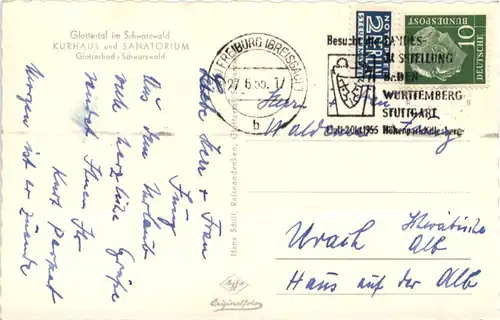 Glottertal im Schwarzwald
KURHAUS und SANATORIUM
Glotterbad - Schwarzwald
FREIBURG (BREISGAU) 1
27.6.55.-17
b
Besuche die LANDES-
AUSSTELLUNG
BADEN
WÜRTTEMBERG
STUTTGART
Höhenpark Killesberg
NOTOPFER
2
BERLIN
STEUERMARKE
10
DEUTSCHE
BUNDESPOST
Liebe Herr + Frau
Jung
Aus dem Urlaub
recht herzliche Grüße
sendet Ihnen Ihr
Kurt
Morgen ist er zuende
Hans Schill, Reiseandenken, Glottertal
Agfa
Originalfoto
Herr + Frau
Waldemar Jung
Urach Schwäbische
Alb
Haus auf der Alb